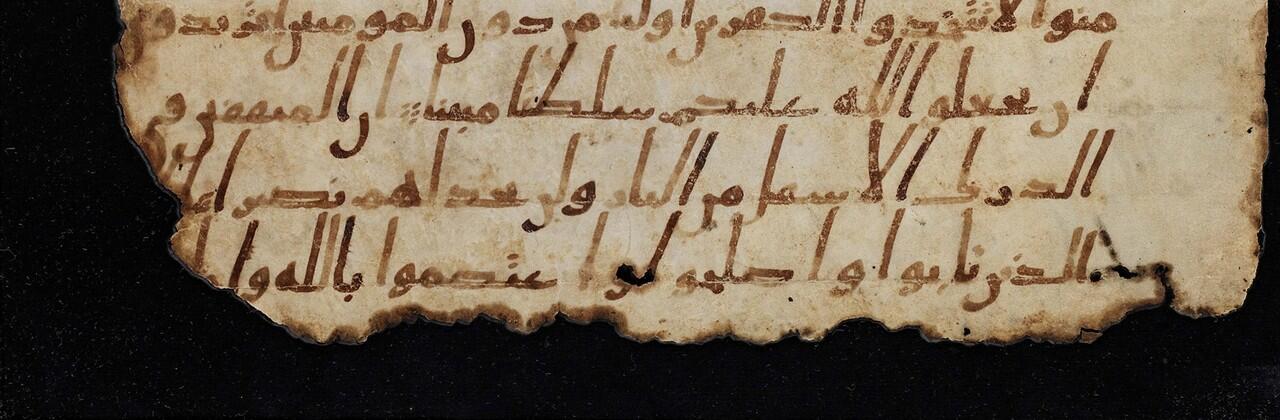 منوا لا تتخذوا الكفرين اوليا من دون المومنين اتريدون
ان تجعلوا لله عليكم سلطنا مبينا ان المنفقين في
الدرك الاسفل من النار ولن تجد لهم نصيرا الا
الذين تابوا واصلحوا واعتصموا بالله وا